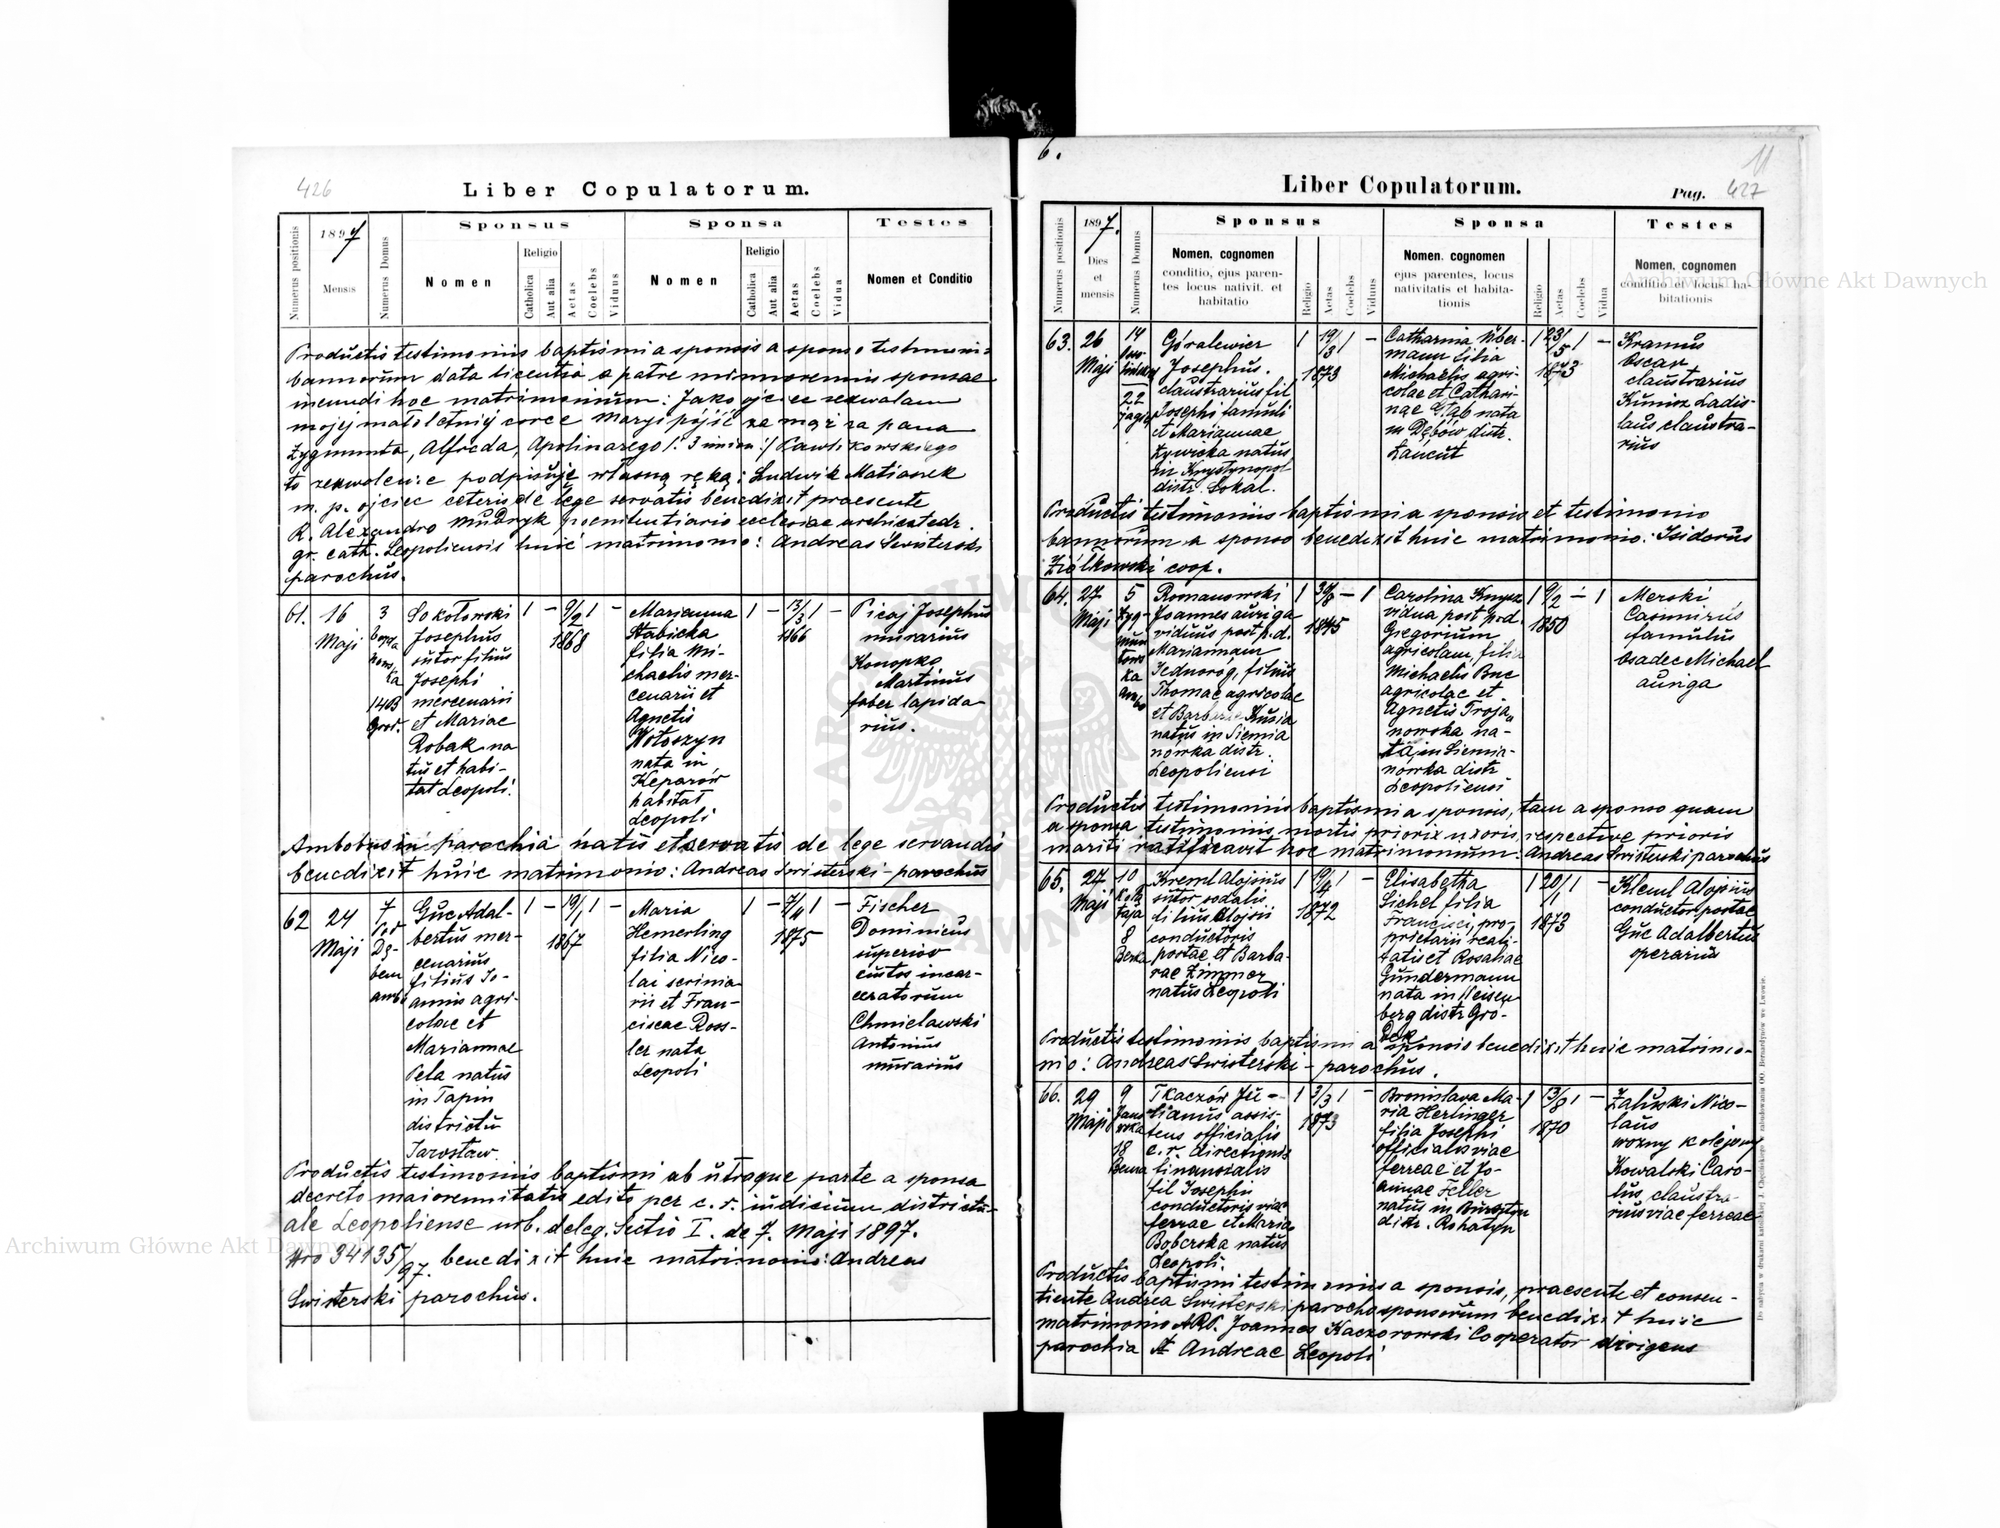 426
Liber Copulatorum.
Numerus positionis
1897
Mensis
Numerus Domus
Sponsus
Nomen
Religio
Catholica
Aut alia
Aetas
Coelebs
Viduus
Sponsa
Nomen
Religio
Catholica
Aut alia
Aetas
Coelebs
Vidua
Testes
Nomen et Conditio
Productis testimoniis baptismi a sponsis a sponso testimoni=
bannorum data licentia a patre minorennis sponsae
ineundi hoc matrimonium: Jako ojciec zezwalam
mojej małoletniej córce Maryi pójść za mąż za pana
Zygmunta, Alfreda, Apolinarego /: 3 imion :/ Pawlikowskiego
to zezwolenie podpisuję własną ręką: Ludwik Matianek
m. p. ojciec ceteris de lege servatis benedixit praesente
R. Alexandro Mudryk poenitentiario ecclesiae archicatedr.
gr. cath. Leopoliensis huic matrimonio: Andreas Swisterski
parochus.
61.
16
Maji
3
1403
Grod.
Sokołowski
Josephus
sutor filius
Josephi
mercenarii
et Mariae
Robak na
tus et habi-
tat Leopoli.
1
-
9/2
1868
1
-
Marianna
Stabicka
filia Mi-
chaelis mer-
cenarii et
Agnetis
Wołoszyn
nata in
Keparów
habitat
Leopoli
1
-
13/3
1866
1
-
Picaj Josephus
murarius
Konopka
Martinus
faber lapida
rius.
Ambobus in parochia natis et servatis de lege servandis
benedixit huic matrimonio: Andreas Swisterski - parochus
62
24
Maji
7
Pod
Dę-
bem
ambo
Guc Adal-
bertus mer-
cenarius
filius Jo-
annis agri-
colae et
Mariannae
Pela natus
in Tapin
districtu
Jarosław.
1
-
19/1
1867
1
-
Maria
Hemerling
filia Nico-
lai scrinia
rii et Fran-
ciscae Ross-
ler nata
Leopoli
1
-
7/4
1875
1
-
Fischer
Dominicus
superior
custos incar-
ceratorum
Chmielawski
Antonius
murarius
Productis testimoniis baptismi ab utraque parte a sponsa
decreto maiorennitatis edito per c. r. iudicium districtu-
ale Leopoliense urb. deleg. Sectio I. de 7. Maji 1897.
Nro 34135/97. benedixit huic matrimonio: Andreas
Swisterski parochus.
6.
11
Liber Copulatorum.
Pag. 427
Numerus positionis
1897.
Dies
et
mensis
Numerus Domus
Sponsus
Nomen, cognomen
conditio, ejus paren-
tes locus nativit. et
habitatio
Religio
Aetas
Coelebs
Viduus
Sponsa
Nomen, cognomen
ejus parentes, locus
nativitatis et habita-
tionis
Religio
Aetas
Coelebs
Vidua
Testes
Nomen, cognomen
conditio et locus ha-
bitationis
63.
26
Maji
14
22
Góralewicz
Josephus.
claustrarius fil
Josephi famuli
et Mariannae
Żywicka natus
in Krystynopol
distr. Sokal.
1
19/3
1873
1
-
Catharina Über-
mann filia
Michaelis agri-
colae et Cathari-
nae Głąb nata
in Dębów distr.
Łańcut
1
23/5
1873
1
-
Kramus
Oscar
claustrarius
Kunisz Ladis-
laus claustra-
rius
Productis testimoniis baptismi a sponsis et testimonio
bannorum a sponso benedixit huic matrimonio: Isidorus
Ziółkowski coop.
64.
27
Maji
5
Zyg-
mun
tows
ka
ambo
Romanowski
Joannes auriga
viduus post p. d.
Mariannam
Jednoróg, filius
Thomae agricolae
et Barbarae Kusia
natus in Siemia
nowka distr.
Leopoliensi
1
30/8
1845
-
1
Carolina Knysz
vidua post p. d.
Gregorium
agricolam, filia
Michaelis Buc
agricolae et
Agnetis Troja„
nowska na-
ta in Siemia-
nowka distr
Leopoliensi
1
9/2
1850
-
1
Merski
Casimirus
famulus
Osadec Michael
auriga
Productis testimoniis baptismi a sponsis, tam a sponso quam
a sponsa testimoniis mortis prioris uxoris, respective prioris
mariti ratificavit hoc matrimonium: Andreas Swisterski parochus
65.
27
Maji
10
Kołą
taja
8
Berka
Kreml Alojsius
sutor sodalis
filius Alojsii
conductoris
postae et Barba-
rae Zimmer
natus Leopoli
1
19/4
1872
1
-
Elisabetha
Sichel filia
Francisci, pro-
prietarii reali-
tatis et Rosaliae
Gundermann
nata in Weisen
berg distr Gro-
dek
1
20/1
1873
1
-
Kleml Alojsius
conductor postae
Guc Adalbertus
operarius
Productis testimoniis baptismi a sponsis benedixit huic matrimo-
nio: Andreas Swisterski - parochus.
66.
29
Maji
9
Jano
wska
18
Bema
Tkaczów Ju-
lianus assis-
tens officialis
c. r. directionis
finansialis
fil Josephi
conductoris viae
ferrae et Maria
Boberska natus
Leopoli.
1
3/3
1873
1
-
Bronislava Ma-
ria Herlinger
filia Josephi
officialis viae
ferreae et Jo-
annae Feller
natus in Bursztyn
distr. Rohatyn
1
13/8
1870
1
-
Załuski Nico-
laus
woźny kolejowy
Kowalski Caro-
lus, claustra-
rius viae ferreae
Productis baptismi testimoniis a sponsis, praesente et consen-
tiente Andrea Swisterski parocho sponsorum benedixit huic
matrimonio ARP. Joannes Kaczorowski Cooperator dirigens
parochia St Andreae Leopoli
Do nabycia w drukarni katolickiej J. Chęcińskiego w zabudowaniu OO. Bernardynów we Lwowie.
Archiwum Główne Akt Dawnych
Archiwum Główne Akt Dawnych